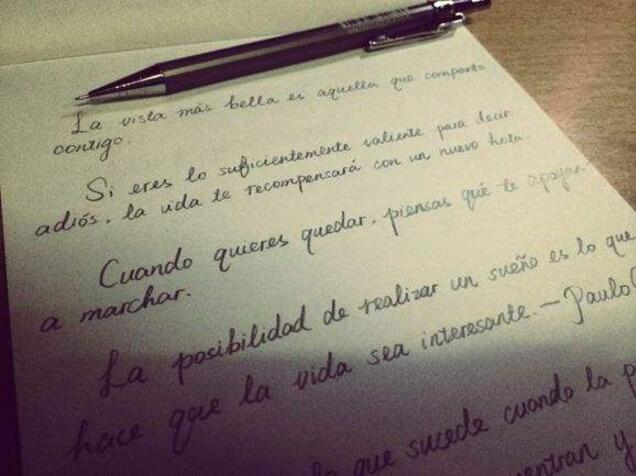 La vista más bella es aquella que comparto
contigo.
Si eres lo suficientemente valiente para decir
adiós, la vida te recompensará con un nuevo hola.
Cuando quieres quedar, piensas qué te apoyan
a marchar.
La posibilidad de realizar un sueño es lo que
hace que la vida sea interesante. — Paulo
lo que sucede cuando la
entran y